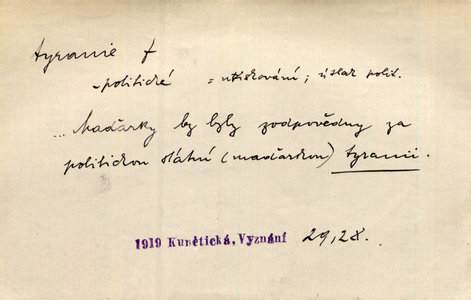 tyranie f
-politické = utiskování; útlak polit.
... maďarky by byly zodpovědny za
politickou státní (maďarskou) tyranii.
1919 Kunětická, Vyznání 29,28.